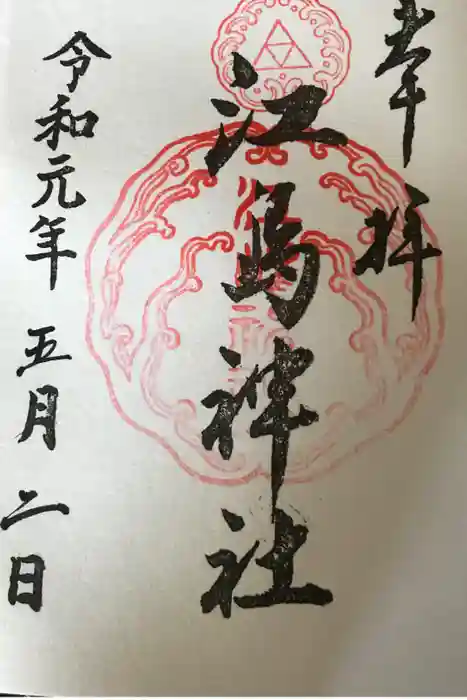 奉拝
江島神社
令和元年五月二日